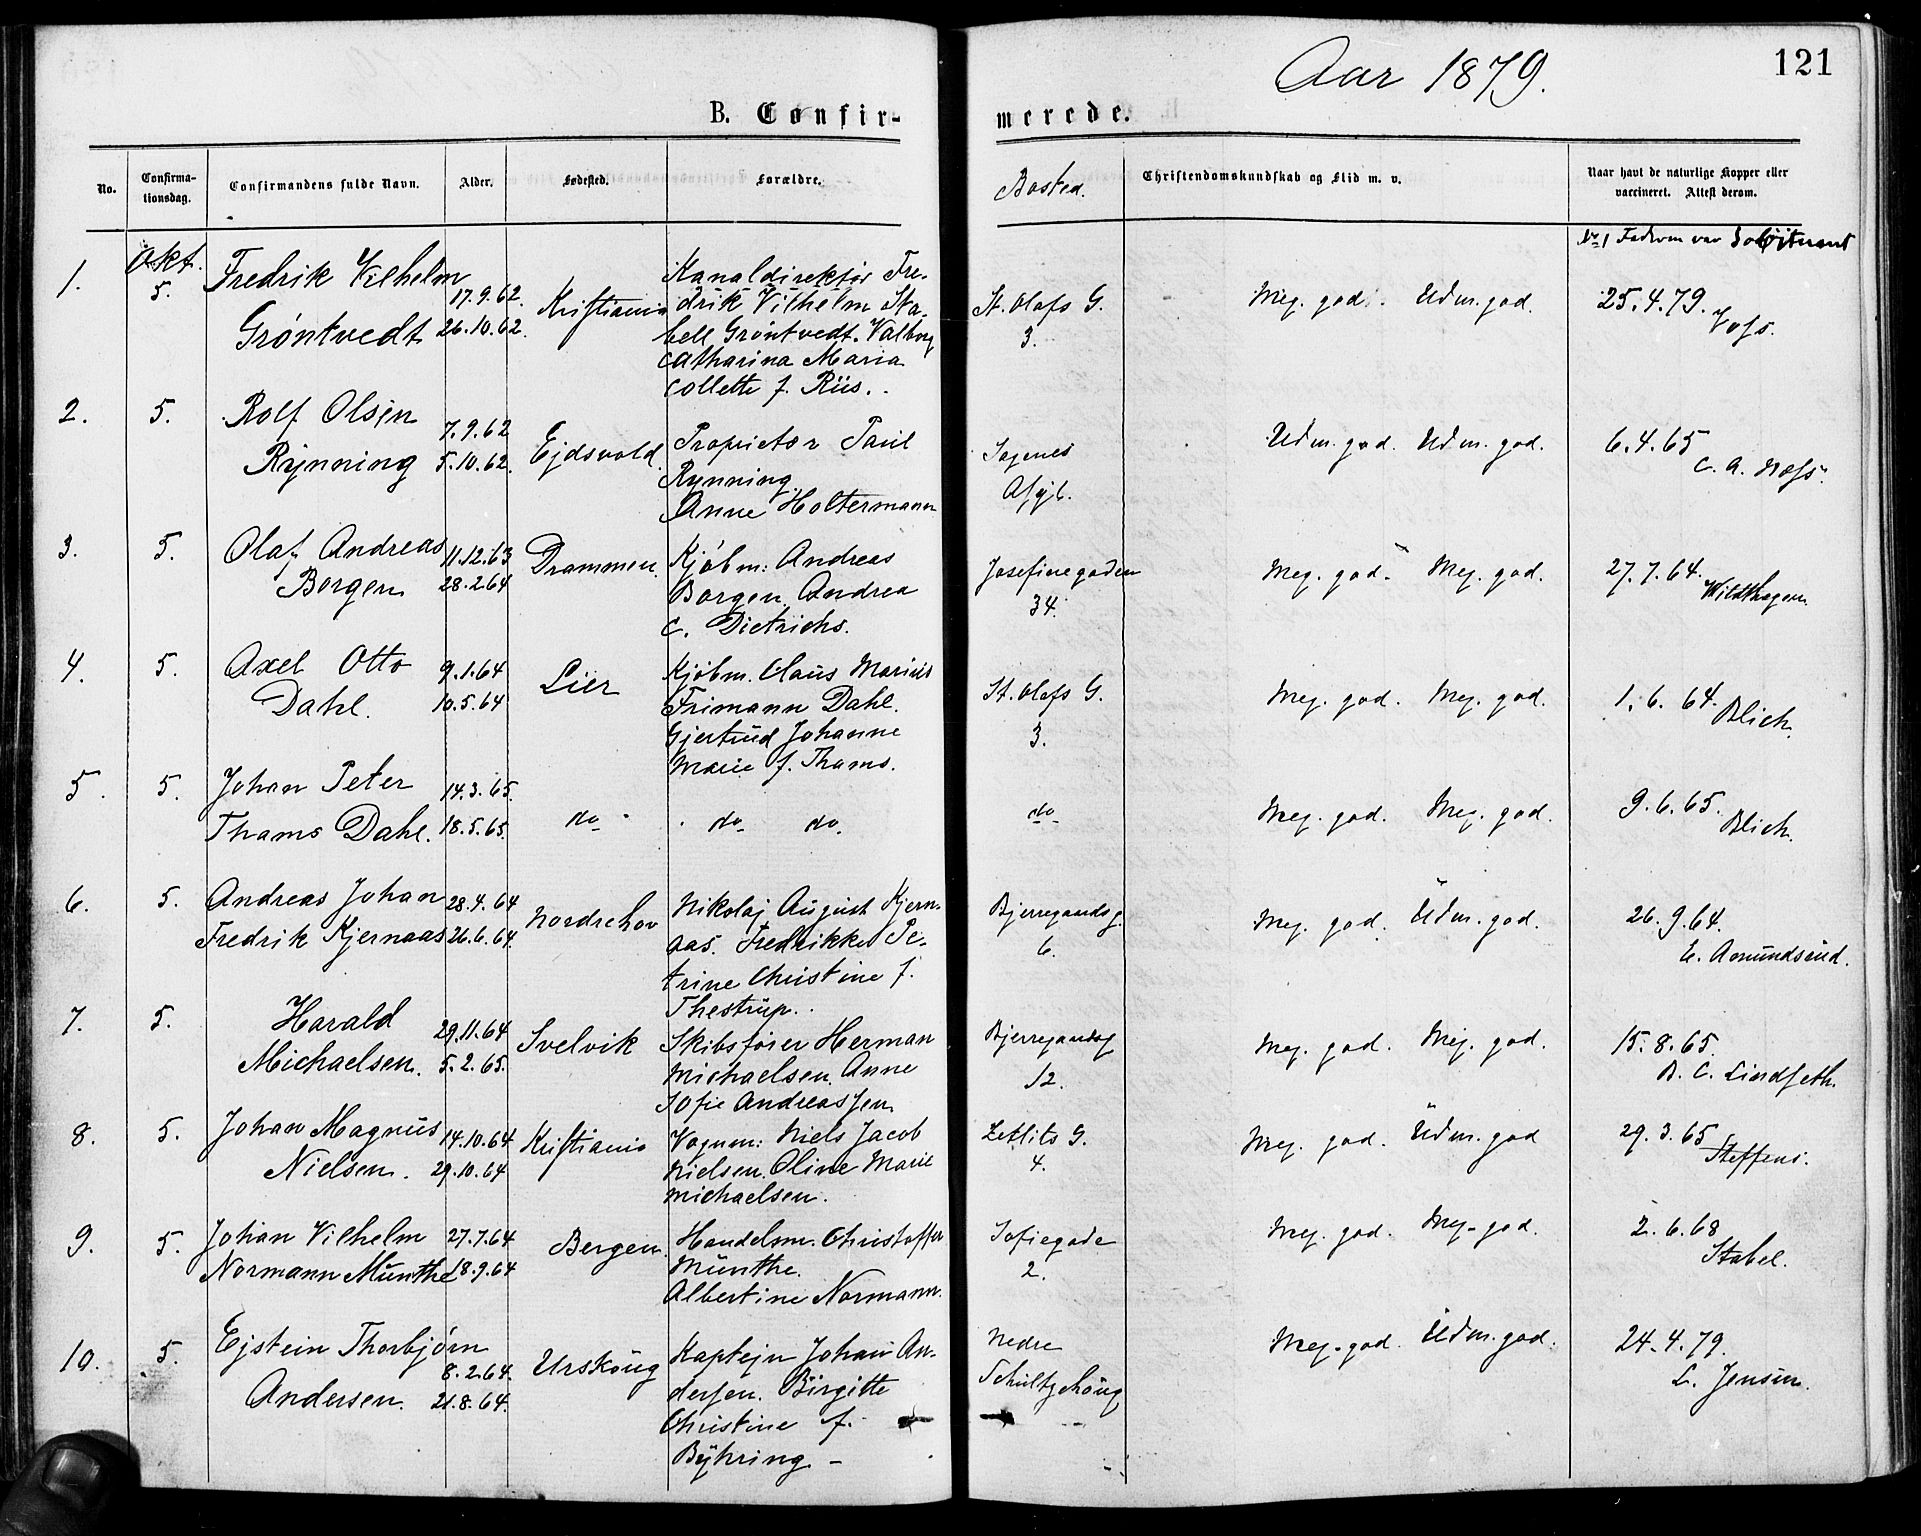 Aar 1879.
121
B. Confir-
merede.
No.
Confirma-
tionsdag.
Confirmandens fulde Navn.
Alder.
Fødested.
Forældre.
Bosted.
Christendomskundskab og Flid m. v.
Naar havt de naturlige Kopper eller
vaccineret. Attest derom.
No 1 Faderen var
1.
Okt.
5.
Fredrik Vilhelm
Gróntvedt
17.9.62.
26.10.62.
Kristiania
Kanaldirektór Fre-
drik Vilhelm Sta-
bell Gróntvedt. Valborg
Catharina Maria
Collette f. Riis.
St. Olafs G.
3.
Meg. god. Udm. god.
25.4.79.
Voss.
2.
5.
Rolf Olsen
Rynning
7.9.62
5.10.62.
Ejdsvold.
Proprietær Paul
Rynning.
Anne Holtermann
Sagenes
Asyl.
Udm. god. Udm. god.
6.4.65
C. A. Næss.
3.
5.
Olaf Andreas
Borgen
11.12.63
28.2.64
Drammen.
Kjóbm: Andreas
Borgen. Andrea
C. Dietrichs.
Josefinegaden
34.
Meg. god. Meg. god.
27.7.64.
Wildthagen
4.
5.
Axel Otto
Dahl.
9.1.64
10.5.64
Lier
Kjóbm. Claus Marius
Frimann Dahl.
Gjertrud Johanne
Marie f. Thams.
St. Olafs G.
3.
Meg. god. Meg. god.
1.6.64.
Blich.
5.
5.
Johan Peter
Thams Dahl.
14.3.65.
18.5.65.
do
do do.
do
Meg. god. Meg. god.
9.6.65.
Blich.
6.
5.
Andreas Johan
Fredrik Kjernaas
28.4.64
26.6.64.
Nordrehov
Nikolaj August Kjern-
aas. Fredrikke Pe-
trine Christine f.
Thestrup.
Bjerregaardsg.
6.
Meg. god. Udm. god.
26.9.64.
E. Amundsrud.
7.
5.
Harald
Michaelsen.
29.11.64
5.2.65.
Svelvik
Skibsfórer Herman
Michaelsen. Anne
Sofie Andreassen
Bjerregaardsg
12.
Meg. god. Meg. god.
15.8.65.
B. C. Lindseth.
8.
5.
Johan Magnus
Nielsen.
14.10.64
29.10.64
Kristiania
Vognm: Niels Jacob
Nielsen. Oline Marie
Michaelsen.
Zetlits G.
4.
Meg. god. Udm. god
29.3.65
Steffens.
9.
5.
Johan Vilhelm
Normann Munthe
27.7.64
18.9.64
Bergen.
Handelsm. Christoffer
Munthe.
Albertine Normann.
Sofiegade
2.
Meg. god. Meg. god.
2.6.68
Stabel.
10.
5.
Ejstein Thorbjórn
Andersen.
8.2.64.
21.8.64.
Urskoug
Kaptejn Johan An-
dersen. Birgitte
Christine f.
Byhring -
Nedre
Schultzehoug
Meg. god. Udm. god.
24.4.79.
L. Jensen.